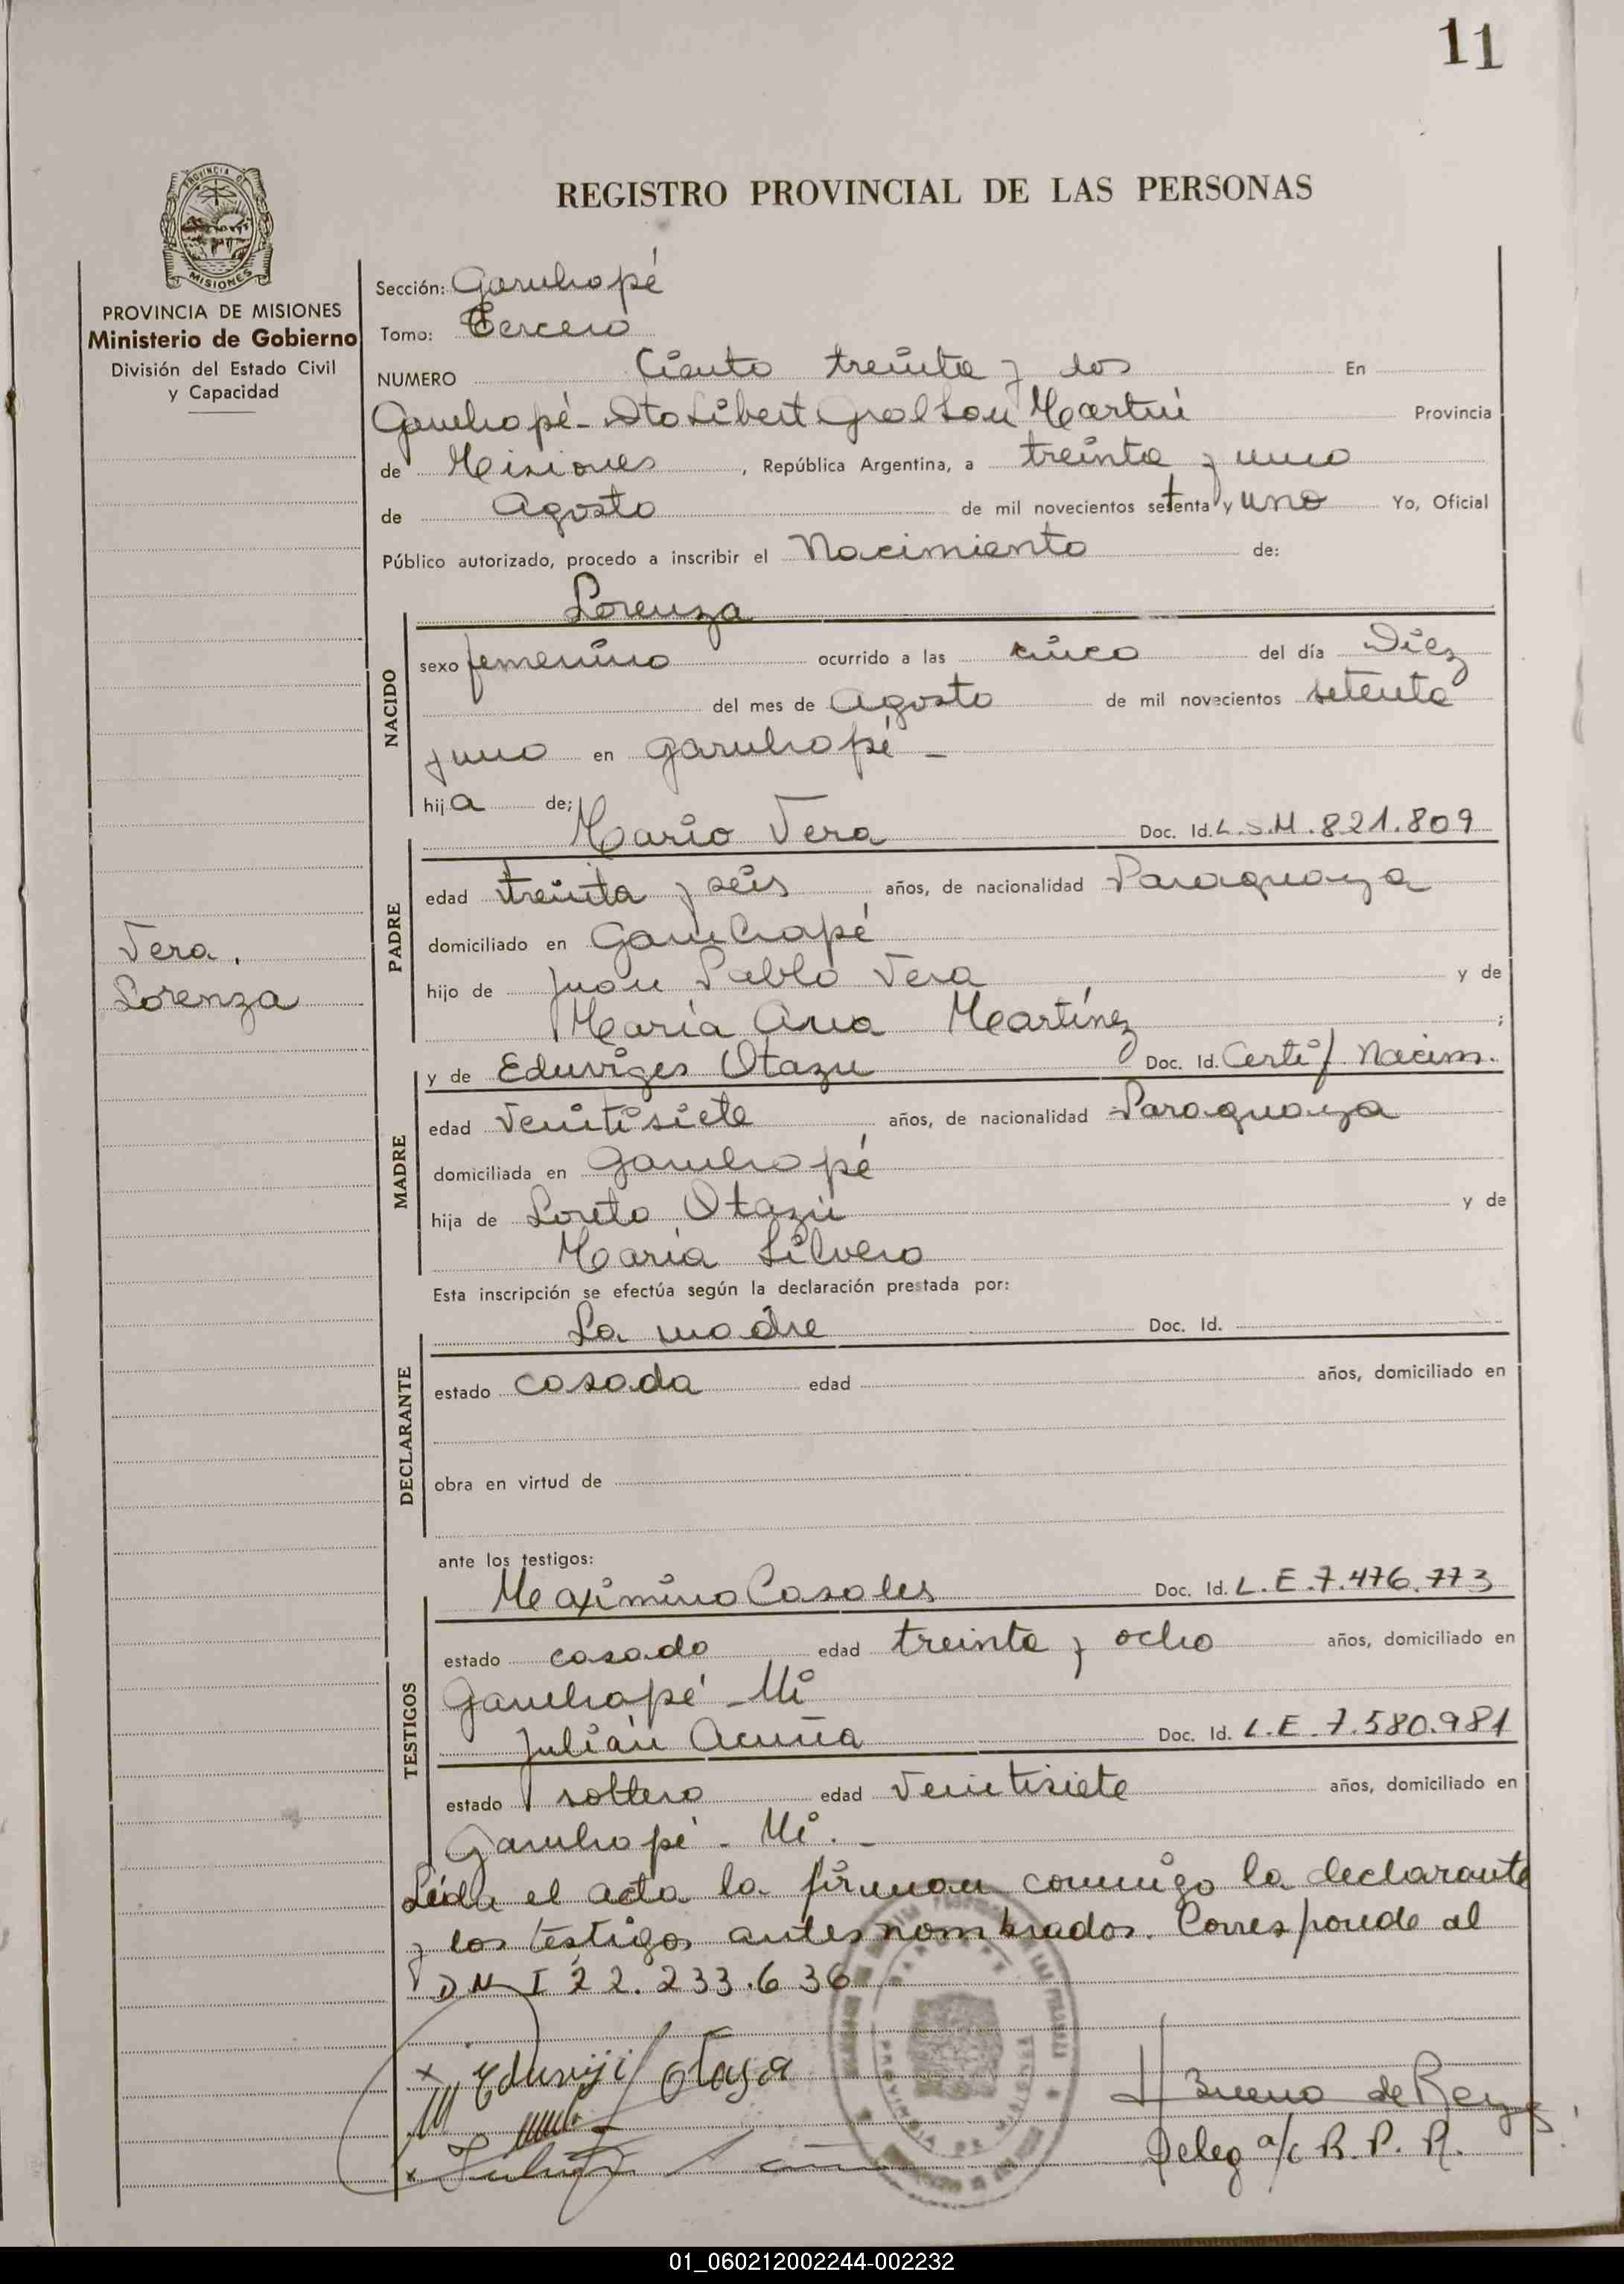 11
REGISTRO PROVINCIAL DE LAS PERSONAS
PROVINCIA DE MISIONES
Ministerio de Gobierno
División del Estado Civil
y Capacidad
Vera,
Lorenza
Sección: Garuhapé
Tomo: Tercero
NUMERO Ciento treinta y dos En
Garuhapé - Dto Libert Gral San Martín Provincia
de Misiones, República Argentina, a treinta y uno
de Agosto de mil novecientos setenta y uno Yo, Oficial
Público autorizado, procedo a inscribir el Nacimiento de:
Lorenza
NACIDO
sexo femenino ocurrido a las cinco del día Diez
del mes de Agosto de mil novecientos setenta
y uno en Garuhapé -
hija de;
Mario Vera Doc. Id. L.S.M. 821.809
PADRE
edad treinta y seis años, de nacionalidad Paraguaya
domiciliado en Garuhapé
hijo de Juan Pablo Vera y de
María Ana Martínez ;
y de Eduviges Otazu Doc. Id. Certif Nacim.
MADRE
edad Veintisiete años, de nacionalidad Paraguaya
domiciliada en Garuhapé
hija de Loreto Otazú y de
María Silvero
Esta inscripción se efectúa según la declaración prestada por:
La madre Doc. Id.
DECLARANTE
estado casada edad años, domiciliado en
obra en virtud de
ante los testigos:
Maximino Casales Doc. Id. L.E. 7.476.773
TESTIGOS
estado casado edad treinta y ocho años, domiciliado en
Garuhapé - Mi
Julián Acuña Doc. Id. L.E. 7.580.981
estado soltero edad Veintisiete años, domiciliado en
Garuhapé - Mi. -
Leída el acta la firman conmigo la declarante
y los testigos antes nombrados. Corresponde al
DNI 22.233.636
x Eduviji Otasa
H Bueno de Rey
Deleg a/c R.P.P.
01_060212002244-002232